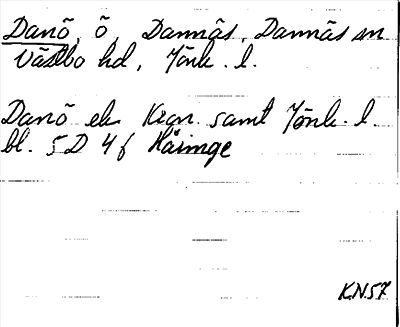 Danö, ö, Dannäs, Dannäs sn
Västbo hd, Jönk. l.
Danö ek Kron. samt Jönk. l.
bl. 5D 4f Hårnge
K.N.57